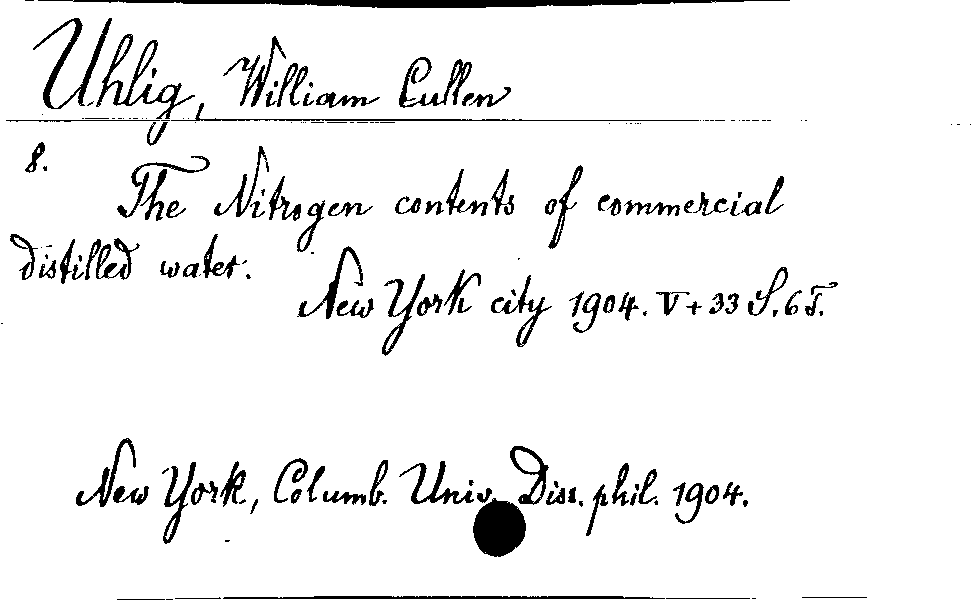 Uhlig, William Cullen
8.
The Nitrogen contents of commercial
distilled water.
New York city 1904. V + 33 S. 6 T.
New York, Columb. Univ. Diss. phil. 1904.